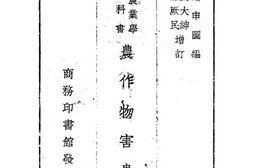 申圖編
大紳
厥民增訂
農業學
科書
農作物害
商務印書館發